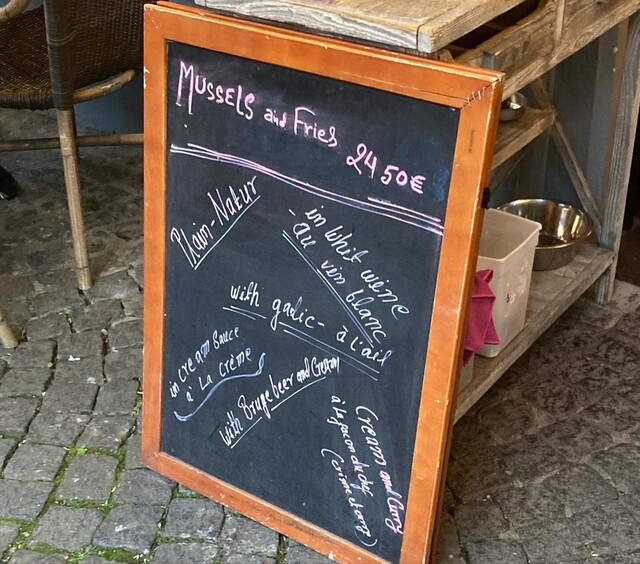 MUSSELS and Fries 24 50€
Plain-Natur
in bhit wine
- au vin blanc
with galic - à l'ail
in cream sauce
à La crème
with Bruge beer and Cream
Cream and Curry
à la façon du chef
(crème et curry)